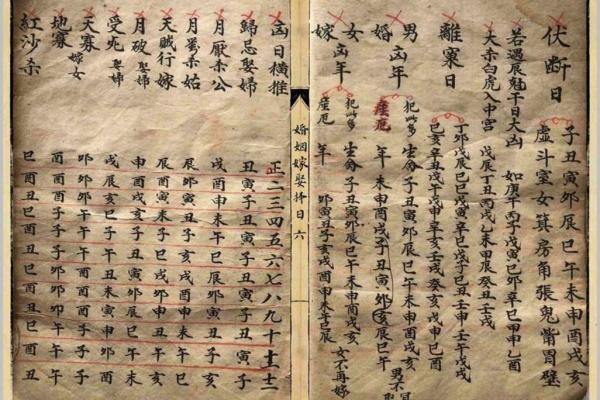 伏断日 子丑寅卯辰巳午未申酉戌亥
虚斗室女箕房角張鬼觜胃壁
若遇辰魁干日大凶 如庚午丙子戊寅己卯辛巳甲申乙酉
大杀白虎入中宫 戊辰丁丑丙戌乙未甲辰癸丑壬戌
離窠日
男婚凶年 犯此多産厄 生命子丑寅卯辰巳午未申酉戌亥
年 未申酉戌子丑寅卯辰巳午
女嫁凶年 犯此多産厄 生命子丑寅卯辰巳午未申酉戌亥
年 卯寅丑子亥戌酉申未午巳辰 女不再嫁
婚姻嫁娶择日 六
凶日横推 正二三四五六七八九十十一十二
歸忌娶婦 丑寅子丑寅子丑寅子丑寅子
月厭杀公 戌酉申未午巳辰卯寅丑子亥
杀姑 辰卯寅丑子亥戌酉申未午巳
天贼行嫁 辰酉寅未子巳戌卯申丑午亥
月破娶婦 申酉戌亥子丑寅卯辰巳午未
受死娶婦 戌辰亥巳子午丑未寅申卯酉
天寡嫁女 卯卯卯午午午酉酉酉子子子
地寡 酉酉酉子子子卯卯卯午午午
紅沙杀 巳酉丑巳酉丑巳酉丑巳酉丑